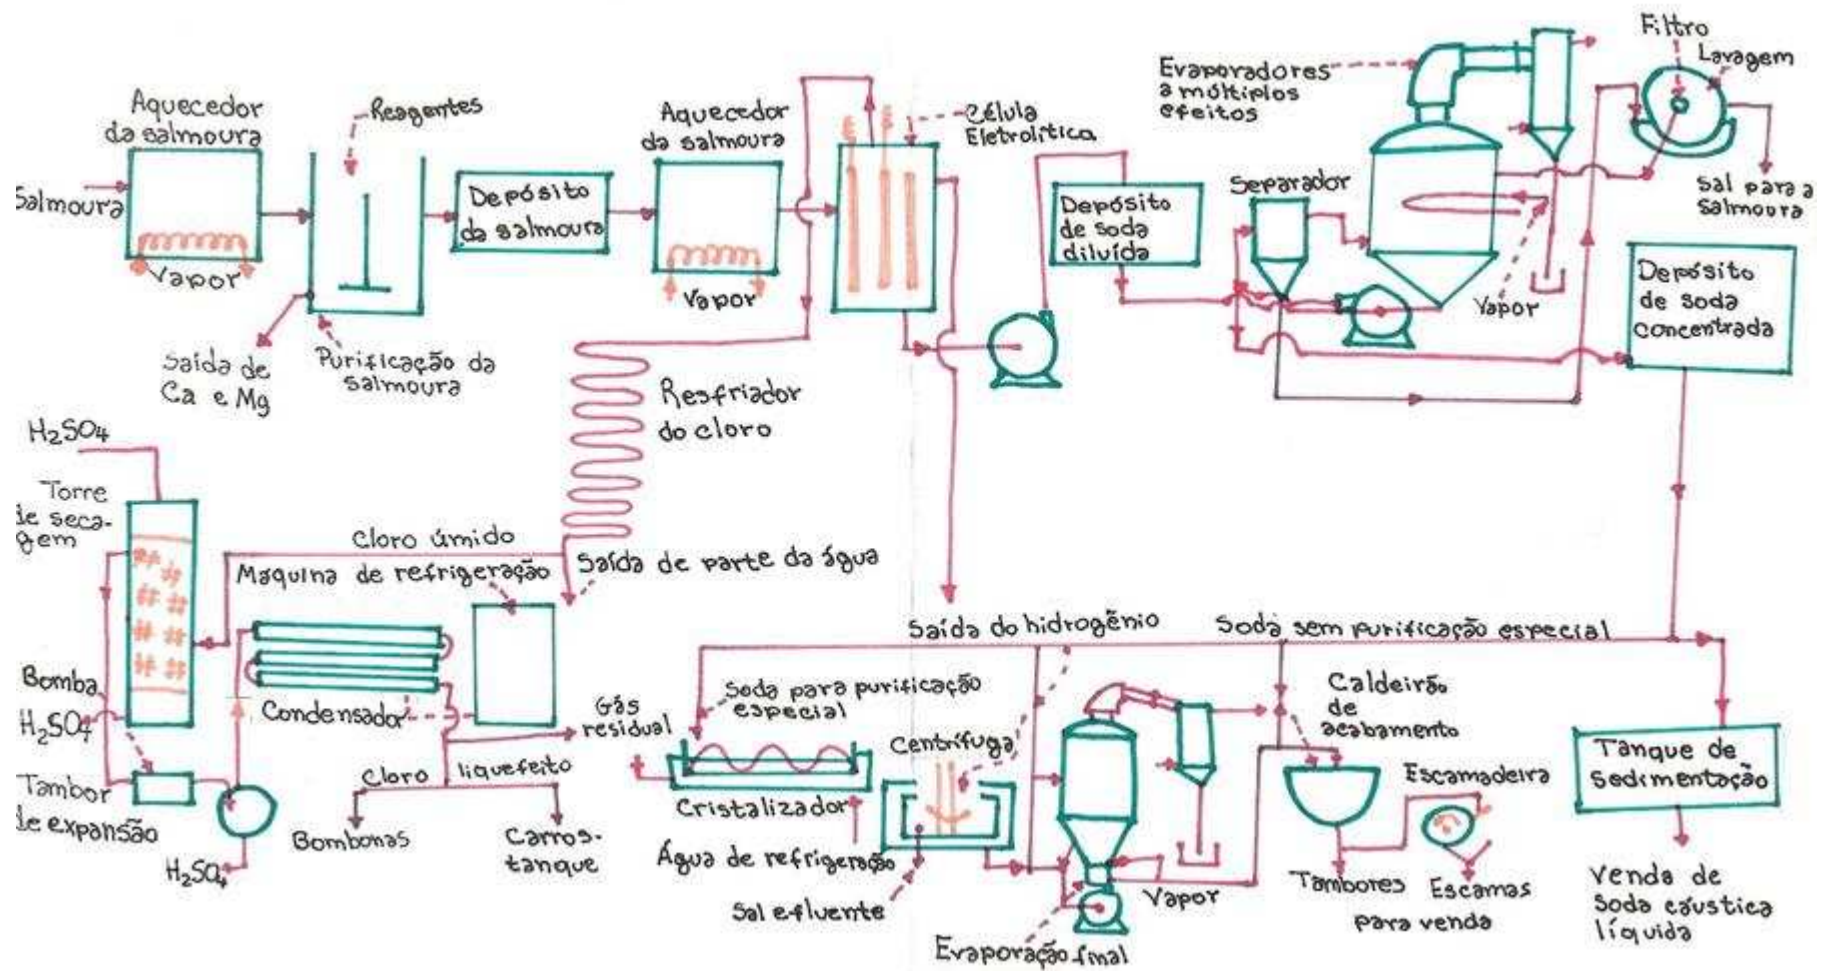 Aquecedor
da salmoura
Salmoura
Vapor
Reagentes
Saída de
Ca e Mg
Purificação da
salmoura
Depósito
da salmoura
Aquecedor
da salmoura
Vapor
Célula
Eletrolítica
Depósito
de soda
diluída
Separador
Evaporadores
a múltiplos
efeitos
Vapor
Filtro
Lavagem
Sal para a
salmoura
Depósito
de soda
concentrada
Resfriador
do cloro
H₂SO₄
Torre
de seca-
gem
Cloro úmido
Máquina de refrigeração
Saída de parte da água
Bomba
H₂SO₄
Condensador
Tambor
de expansão
H₂SO₄
Gás
residual
Cloro liquefeito
Bombonas
Carros-
tanque
Saída do hidrogênio
Soda sem purificação especial
Soda para purificação
especial
Cristalizador
Água de refrigeração
Centrífuga
Sal efluente
Evaporação final
Vapor
Caldeirão
de
acabamento
Escamadeira
Tambores
Escamas
para venda
Tanque de
sedimentação
Venda de
soda cáustica
líquida